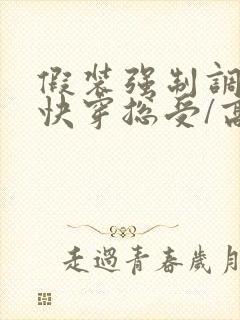 假装强制調
快穿总受/高
走過青春歲月